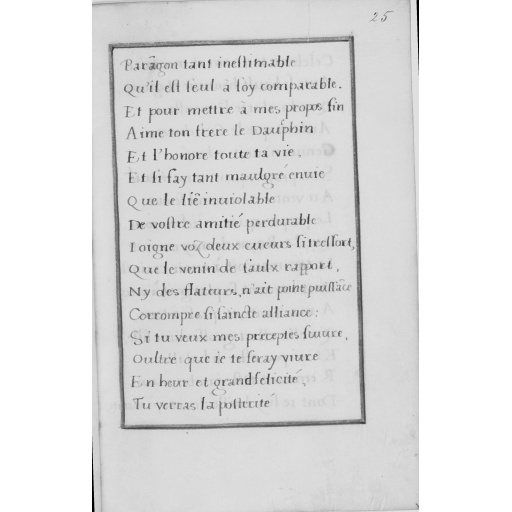 25
Parãgon tant inestimable
Qu'il est seul a soy comparable.
Et pour mettre a mes propos fin
Aime ton frere le Dauphin
Et l'honore toute ta vie,
Et si fay tant maulgré enuie
Que le liẽ inuiolable
De vostre amitié perdurable
Ioigne voz deux cueurs si tresfort,
Que le venin de faulx rapport,
Ny des flateurs, n'ait point puissãce
Corrompre si saincte alliance:
Si tu veux mes preceptes suiure,
Oultre que ie te feray viure
En heur et grand felicité,
Tu verras la posterité